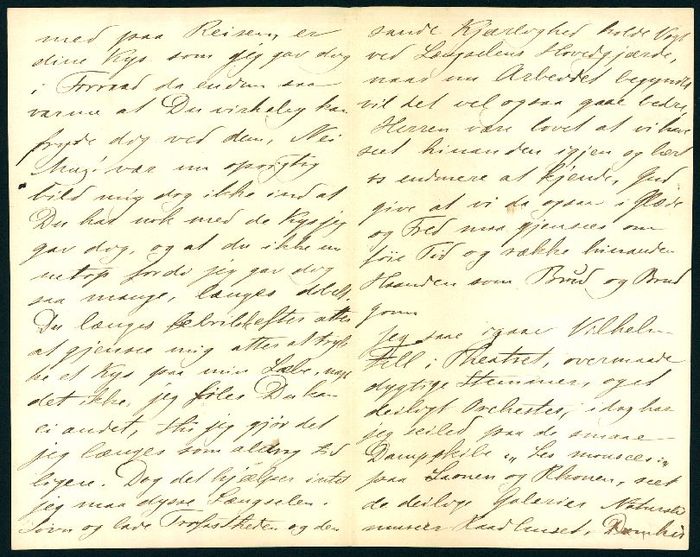 med paa Reisen, er
dine Kys, som jeg gav dig
i Forraad da endnu saa
varme at Du virkelig kan
fryde dig ved dem, Nei
Musi var nu oprigtig
bild mig dog ikke ind at
Du har nok med de Kys jeg
gav dig, og at du ikke nu
netop fordi jeg gav dig
saa mange, længes
Du længes efter atter
at gjensee mig atter at trykke
et Kys paa min Læbe,
det ikke, jeg føler Du kan
ei andet, thi jeg gjør det
jeg længes som aldrig tid
ligere. Dog det hjælper intet
jeg maa dysse Længselen i
Søvn og lade Trofastheden og den
sande Kjærlighed holde Vagt
ved Længselens Hovedgjærde,
naar nu Arbeidet begynder
vil det vel ogsaa gaae bedre,
Herren være lovet at vi have
seet hinanden igjen og lært
os endmere at kjende, Gud
give at vi da ogsaa i Glæde
og Fred maa gjensees om
føie Tid og række hinanden
Haanden som Brud og Brud
gom
Jeg saae igaar Vilhelm
Tell i Theatret, overmaade
dygtige Stemmer, og et
deiligt Orchester, idag har
jeg seilet paa de smaae
Dampskibe "Les mouches"
paa Saonen og Rhonen, seet
de deilige Galerier, Natural
museer Raadhuset, Domkir